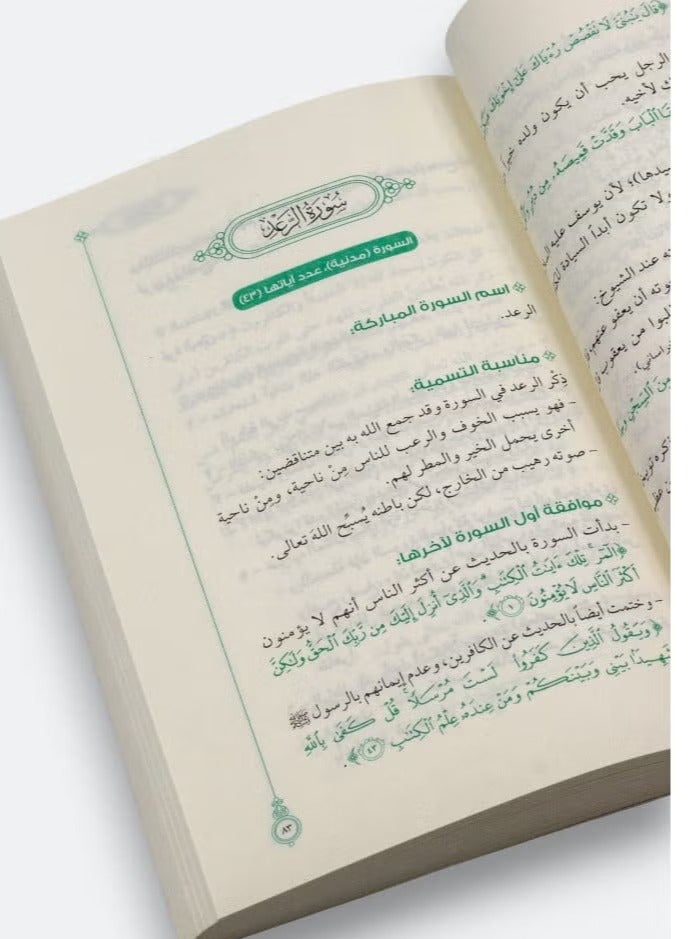 ﴿قَالَ يَٰبُنَيَّ لَا تَقْصُصْ رُءْيَاكَ عَلَىٰٓ إِخْوَتِكَ
الرجل يحب أن يكون ولده خيراً
لأخيه.
الْبَابَ وَقَدَّتْ قَمِيصَهُۥ مِن دُبُرٍ
لأن يوسف عليه
ولا تكون أبداً السيادة
عند الشيوخ:
أن يعفو عنهم
من يعقوب
سُورَةُ الرَّعْدِ
السورة (مدنية)، عدد آياتها (٤٣)
اسم السورة المباركة:
الرعد.
مناسبة التسمية:
ذِكْر الرعد في السورة وقد جمع الله به بين متناقضين:
- فهو يسبب الخوف والرعب للناس مِنْ ناحية، ومِنْ ناحية
أخرى يحمل الخير والمطر لهم.
- صوته رهيب من الخارج، لكن باطنه يُسبِّح اللهَ تعالى.
موافقة أول السورة لآخرها:
- بدأت السورة بالحديث عن أكثر الناس أنهم لا يؤمنون
﴿الٓمٓرۚ تِلْكَ ءَايَٰتُ ٱلْكِتَٰبِۗ وَٱلَّذِىٓ أُنزِلَ إِلَيْكَ مِن رَّبِّكَ ٱلْحَقُّ وَلَٰكِنَّ
أَكْثَرَ ٱلنَّاسِ لَا يُؤْمِنُونَ ۝١﴾.
- وختمت أيضاً بالحديث عن الكافرين، وعدم إيمانهم بالرسول ﷺ
﴿وَيَقُولُ ٱلَّذِينَ كَفَرُوا۟ لَسْتَ مُرْسَلًاۚ قُلْ كَفَىٰ بِٱللَّهِ
شَهِيدًۢا بَيْنِى وَبَيْنَكُمْ وَمَنْ عِندَهُۥ عِلْمُ ٱلْكِتَٰبِ ۝٤٣﴾.
٨٣